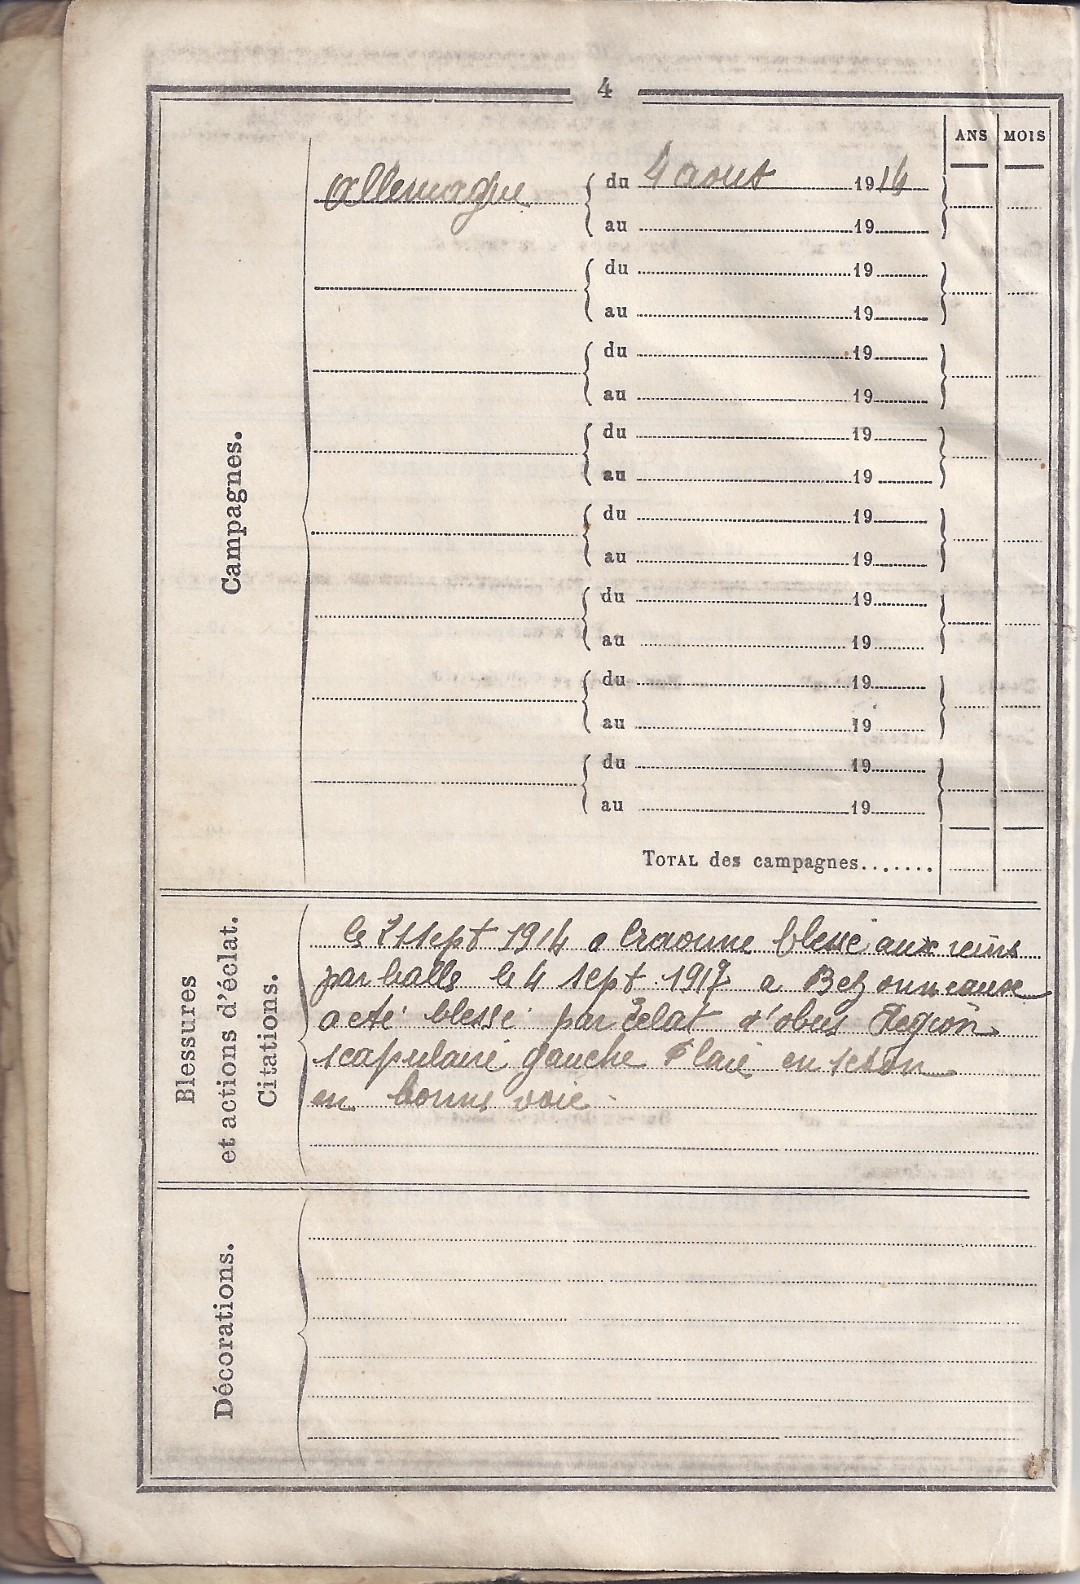 4
ANS MOIS
Campagnes.
allemagne du 4 aout 1914
au 19
du 19
au 19
du 19
au 19
du 19
au 19
du 19
au 19
du 19
au 19
du 19
au 19
du 19
au 19
TOTAL des campagnes.......
Blessures
et actions d'éclat.
Citations.
le 21 sept 1914 a Craonne blessé aux reins
par balle le 4 sept. 1917 a Bezonneaux
a été blessé par Eclat d'obus Region
scapulaire gauche Plaie en seton
en bonne voie.
Décorations.